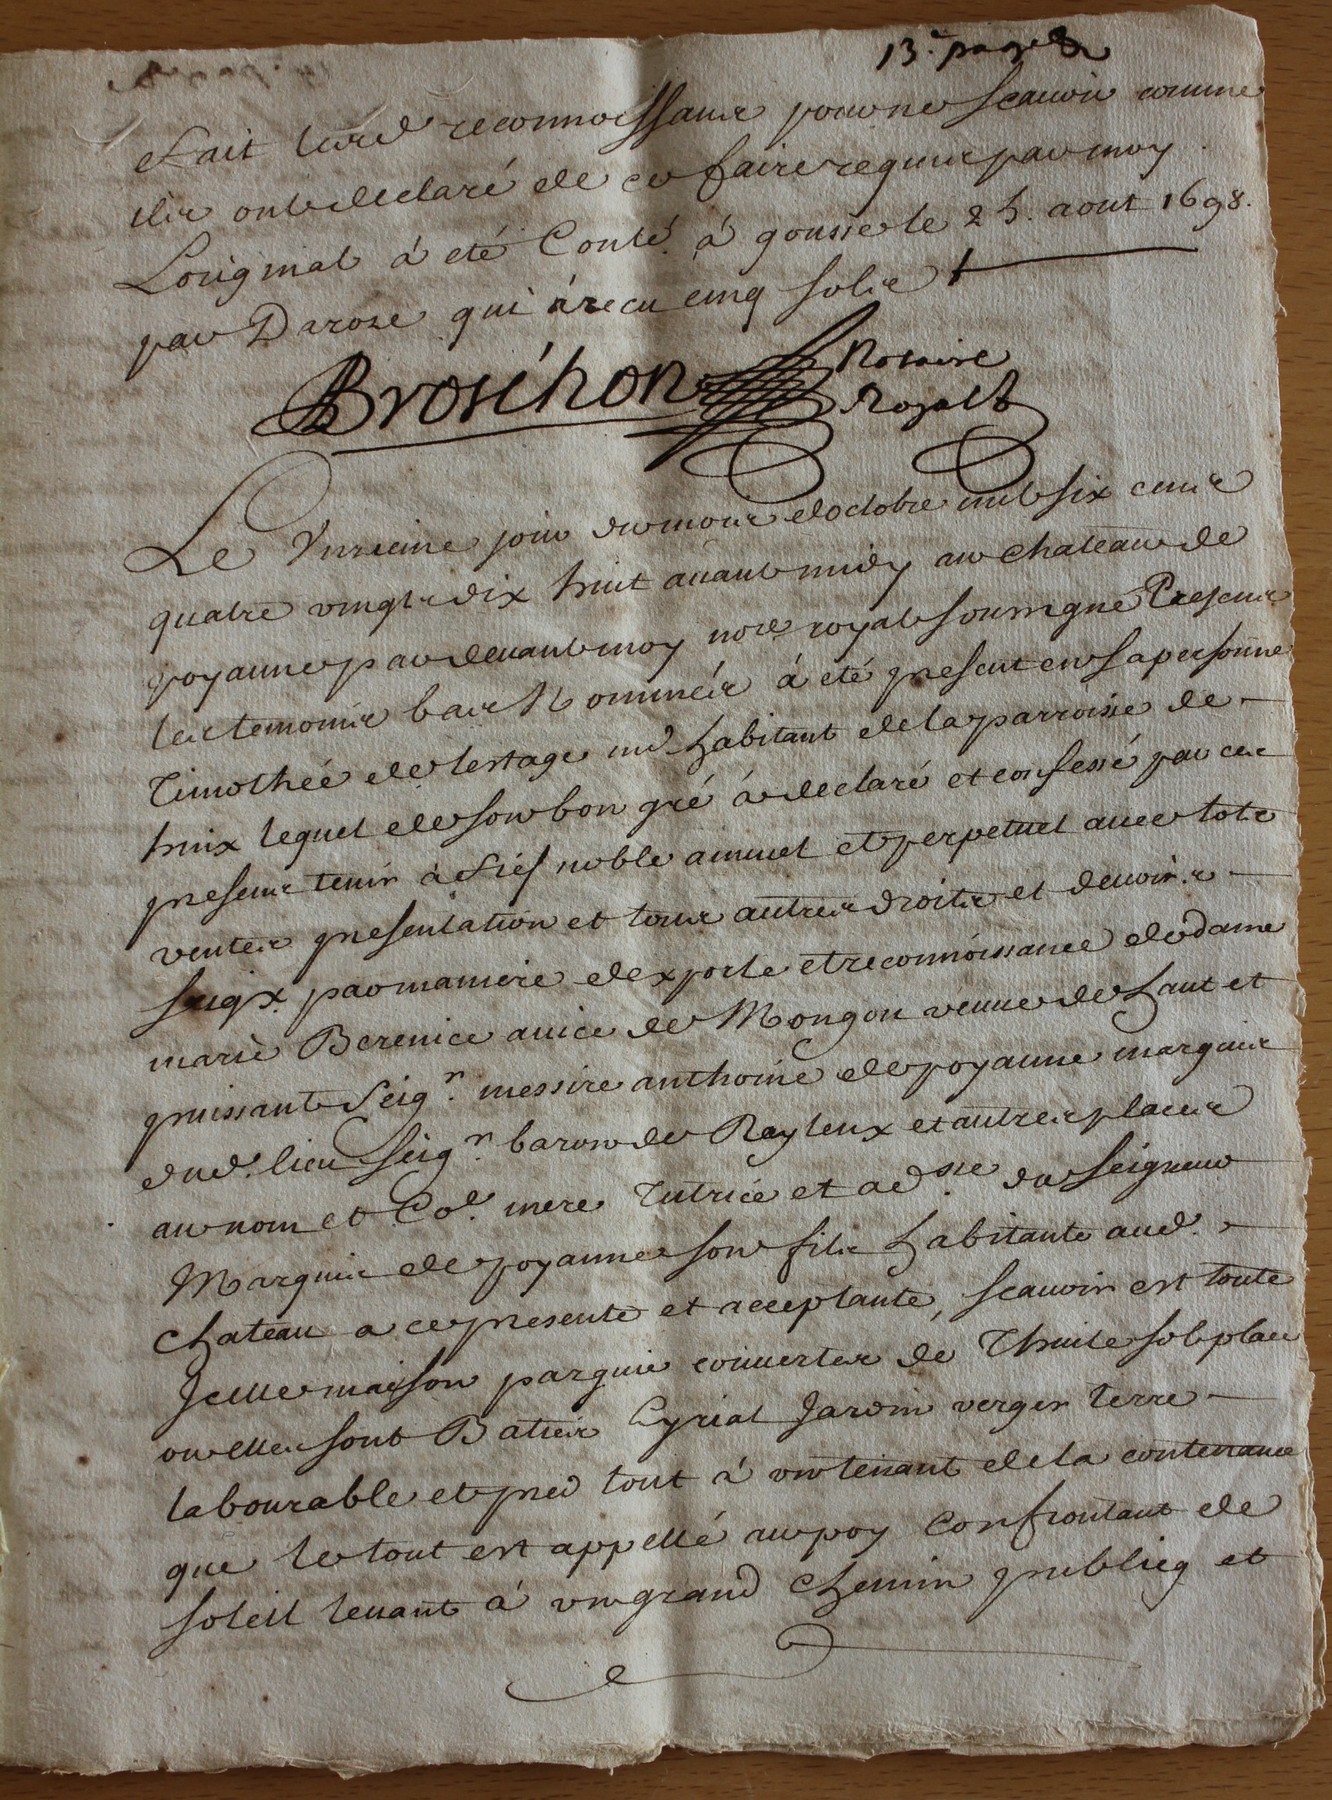 13.e pages
et ait leurd reconnoissance pour ne scauoir comme
ilz ont declaré de ce faire requis par moy
Loriginal à eté Conlé. à gousse le 25. aout 1698.
par Darose qui à recu cinq solz
Broschon Notaire
Royal
Le Vnzieme jour du mois doctobre mil six cens
quatre vingtz dix huit auant midy au chateau de
poyanne par deuant moy nore. royal soussigné Presens
les temoins bas Nommés à eté present en sa personne
Timothée de lestage md habitant de la parroisse de
huix lequel de son bon gré à declaré et confessé par ces
presens tenir à fief noble annuel et perpetuel auec lotz
ventes presentation et tous autres droitz et deuoirs
seigx. par maniere dexporle et reconnoissance de dame
marie Berenice auice de Mongon veuue de haut et
puissant Seigr. messire anthoine de poyanne marquis
dud. lieu Seigr. baron de Rayleux et autres places
au nom et Co.e mere Tutrice et ad.sse du Seigneur
Marquis de poyanne son filz habitante aud.
chateau a ce presente et acceptante, scauoir est toute
Jcelle maison parguis couuertes de Thuile sol place
ou elles sont Baties Eyrial Jardin verger terre
labourable et pred tout à vn tenant de la contenance
que le tout est appellé au poy confrontant de
soleil leuant à vn grand chemin publicq et